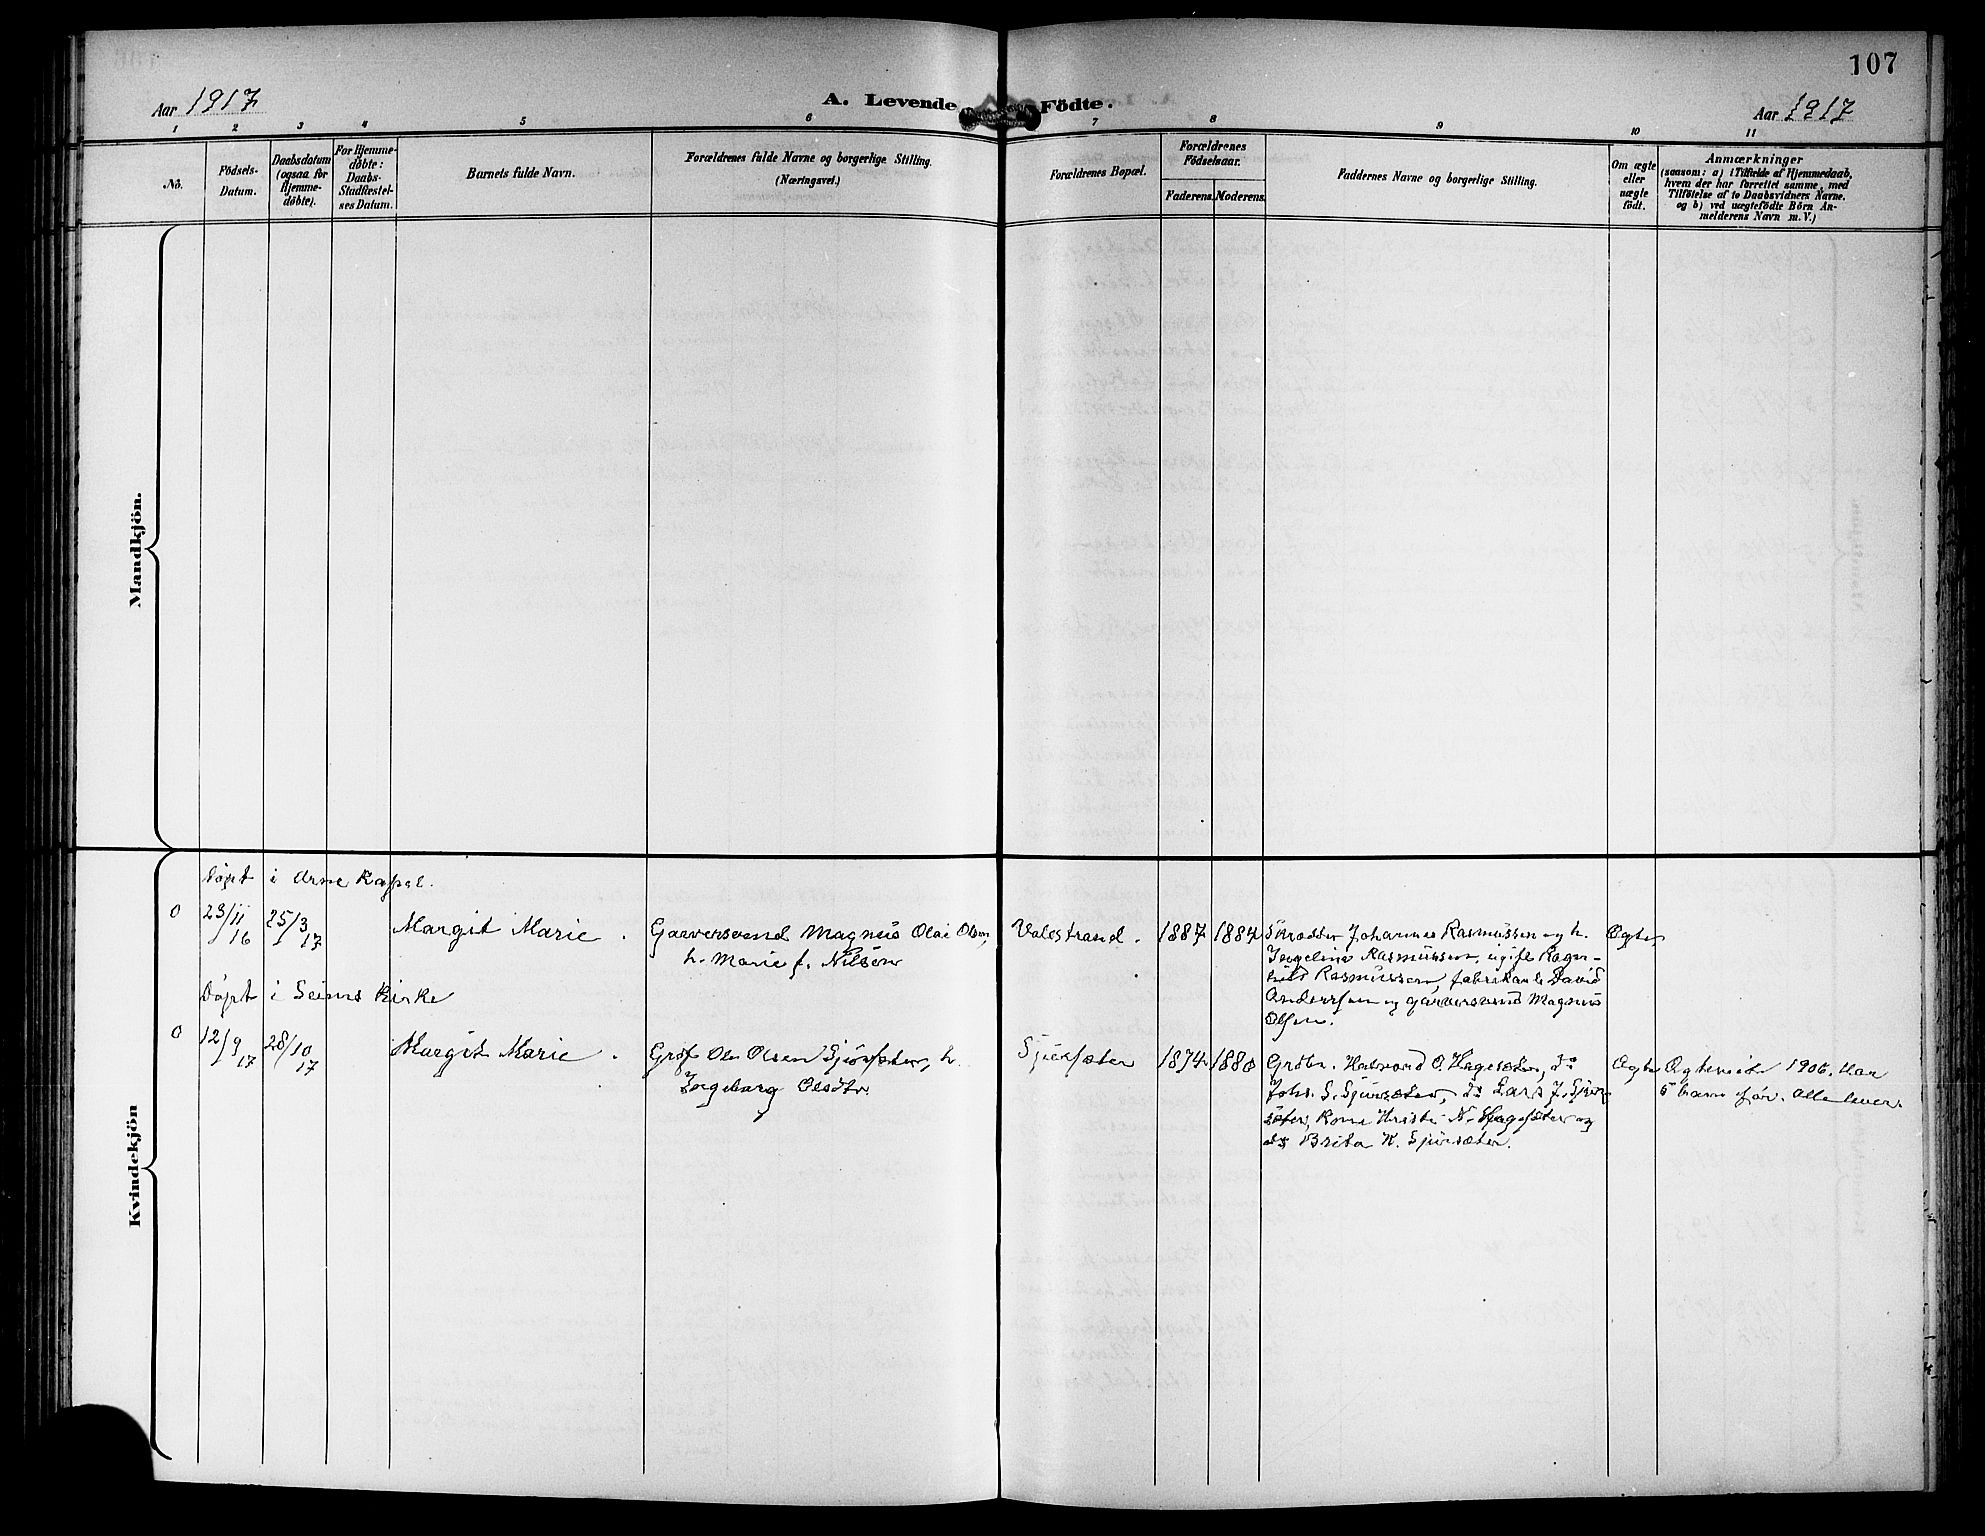 107
Aar 1917
A. Levende Födte.
Aar 1917
1 2 3 4 5 6 7 8 9 10 11
No.
Födsels-
Datum.
Daabsdatum
(ogsaa for
Hjemme-
döbte).
For Hjemme-
döbte:
Daabs-
Stadfæstel-
ses Datum.
Barnets fulde Navn.
Forældrenes fulde Navne og borgerlige Stilling.
(Næringsvei.)
Forældrenes Bopæl.
Forældrenes
Födselsaar.
Faderens. Moderens.
Faddernes Navne og borgerlige Stilling.
Om ægte
eller
uægte
födt.
Anmærkninger
(saasom: a) i Tilfælde af Hjemmedaab,
hvem der har forrettet samme, med
Tilföielse af to Daabsvidners Navne.
og b) ved uægtefödte Börn An-
melderens Navn m. V.)
Mandkjön.
Kvindekjön
Döpt i Arne Kapel.
0 23/11 16 25/3 17 Margit Marie.
Garversvend Magnus Olai Olsen,
h. Marie f. Nilsen
Valestrand. 1887 1884
Skrædder Johannes Rasmussen og h.
Ingeline Rasmussen, ugift Ragn-
hild Rasmussen, fabrikant David
Anderssen og garversvend Magnus
Olsen.
Ægte
Döpt i Seims Kirke
0 12/9 17 28/10 17 Margit Marie.
Grbr Ole Olsen Sjursæter, h.
Ingeborg Olsdtr.
Sjursæter 1874 1880
Grdbr. Halvard O. Hagesæter, do
Johs. S. Sjursæter, do Lars J. Sjur-
sæter, Kone Kristi N. Hagesæter og
do Brita K. Sjursæter.
Ægte
Ægteviet 1906. Har
5 barn før. Alle lever.